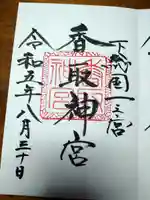 下総国一之宮
香取神宮
令和五年八月三十日